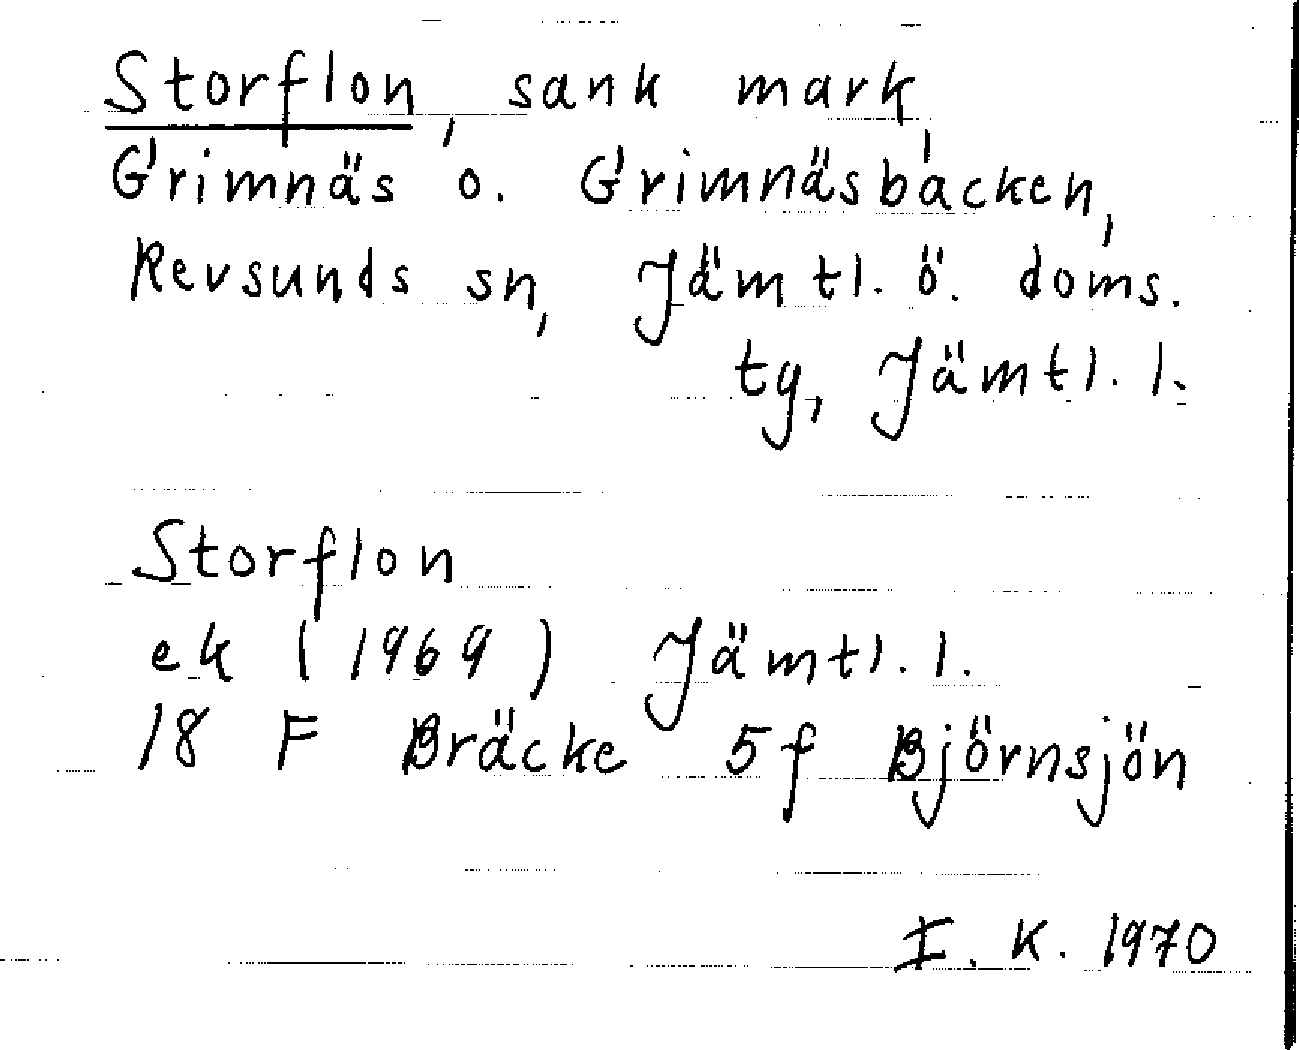 Storflon, sank mark,
Grimnäs o. Grimnäsbacken,
Revsunds sn, Jämtl. ö. doms.
tg, Jämtl. l.
Storflon
ek (1969) Jämtl. l.
18 F Bräcke 5f Björnsjön
I. K. 1970